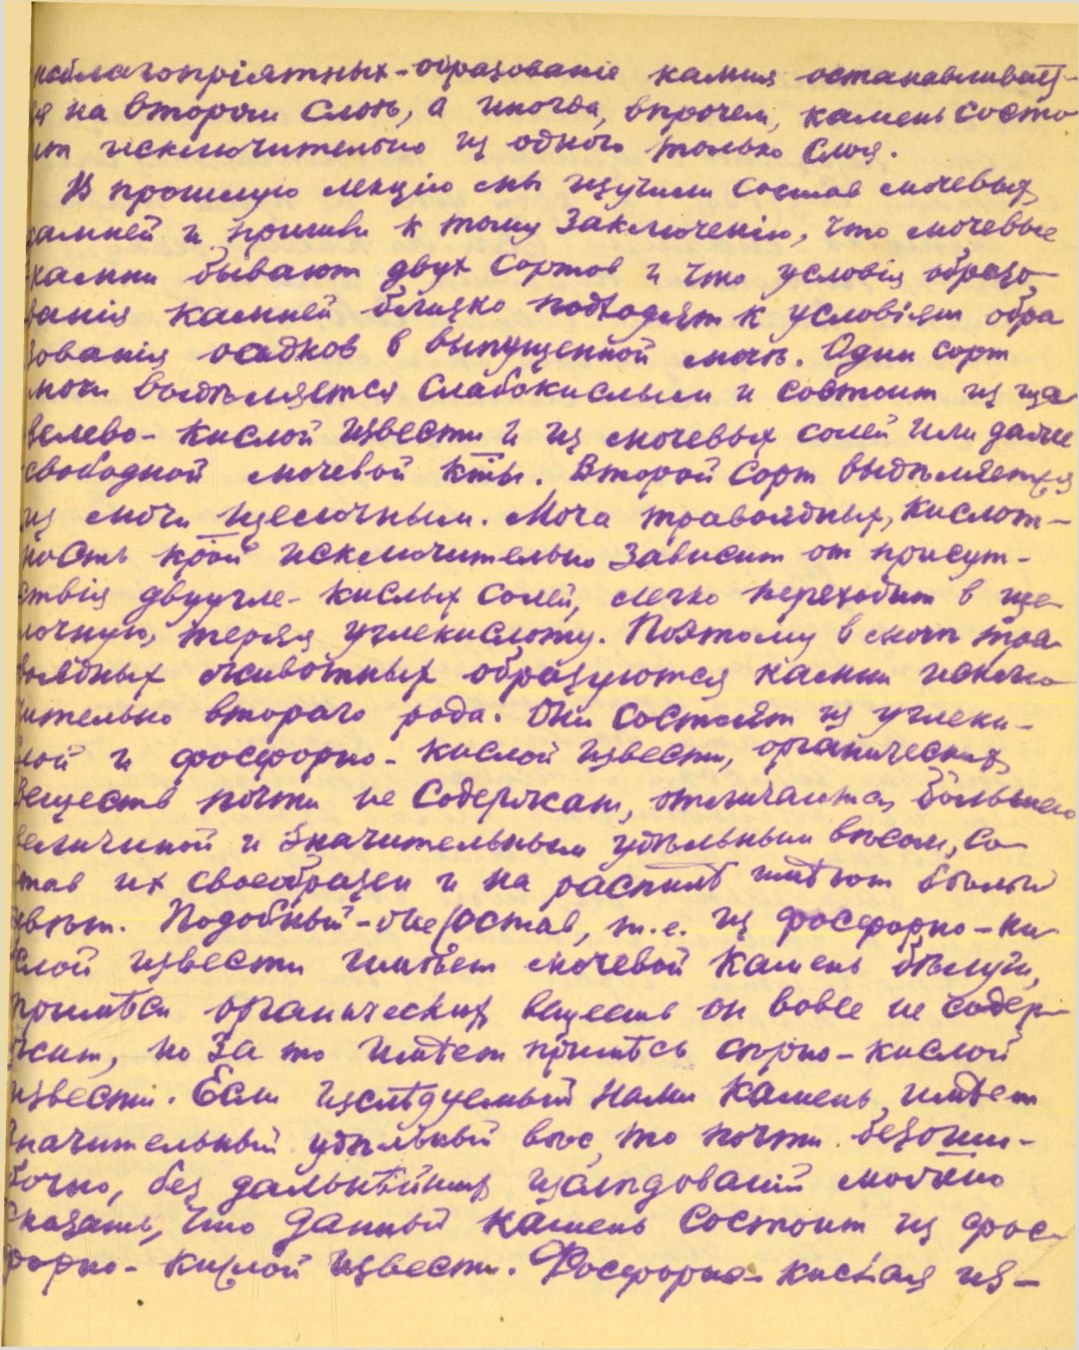 неблагопріятных-образованіе камня останавливает-
ся на втором слоѣ, а иногда, впрочем, камень состо
ит исключительно из одного только слоя.
В прошлую лекцію мы изучили состав мочевых
камней и пришли к тому заключенію, что мочевые
камни бывают двух сортов и что условія образо-
ванія камней близко подходят к условіям обра
зованія осадков в выпущенной мочѣ. Один сорт
мочи выдѣляется слабокислым и состоит из ща
велево-кислой извести и из мочевых солей или даже
свободной мочевой к-ты. Второй сорт выдѣляется
из мочи щелочным. Моча травоядных, кислот-
ность крой исключительно зависит от присут-
ствія двуугле-кислых солей, легко переходит в ще
лочную, теряя углекислоту. Поэтому в мочѣ тра
воядных животных образуются камни исключи
чительно второго рода. Они состоят из углеки-
слой и фосфорно-кислой извести, органических
веществ почти не содержат, отличаются большею
величиной и значительным удѣльным вѣсом, со-
став их своеобразен и на распилѣ имѣют бѣлый
цвѣт. Подобный-же состав, т.е. из фосфорно-ки
слой извести имѣет мочевой камень бѣлуги,
примѣси органических веществ он вовсе не содер-
жит, но за то имѣет примѣсь сѣрно-кислой
извести. Если изслѣдуемый нами камень имѣет
значительный удѣльный вѣс, то почти безоши-
бочно, без дальнѣйших изслѣдованій можно
сказать, что данный камень состоит из фос-
форно-кислой извести. Фосфорно-кислая из-